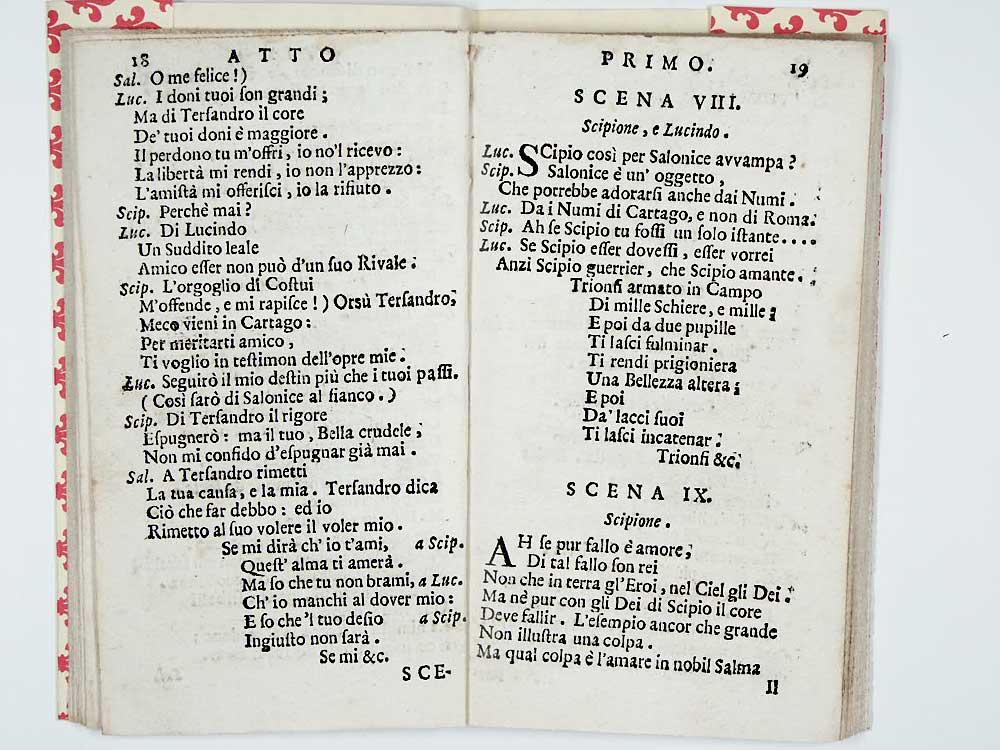 18 ATTO
Sal. O me felice!)
Luc. I doni tuoi ſon grandi;
Ma di Terſandro il core
De' tuoi doni è maggiore.
Il perdono tu m'offri, io no'l ricevo:
La libertà mi rendi, io non l'apprezzo:
L'amiſtà mi offeriſci, io la rifiuto.
Scip. Perchè mai?
Luc. Di Lucindo
Un Suddito leale
Amico eſſer non può d'un ſuo Rivale.
Scip. L'orgoglio di Coſtui
M'offende, e mi rapiſce!) Orsù Terſandro,
Meco vieni in Cartago:
Per meritarti amico,
Ti voglio in teſtimon dell'opre mie.
Luc. Seguirò il mio deſtin più che i tuoi paſſi.
(Così ſarò di Salonice al fianco.)
Scip. Di Terſandro il rigore
Eſpugnerò: ma il tuo, Bella crudele,
Non mi confido d'eſpugnar già mai.
Sal. A Terſandro rimetti
La tua cauſa, e la mia. Terſandro dica
Ciò che far debbo: ed io
Rimetto al ſuo volere il voler mio.
Se mi dirà ch'io t'ami, a Scip.
Queſt'alma ti amerà.
Ma ſo che tu non brami, a Luc.
Ch'io manchi al dover mio:
E ſo che'l tuo deſio a Scip.
Ingiuſto non ſarà.
Se mi &c.
SCE-
PRIMO. 19
SCENA VIII.
Scipione, e Lucindo.
Luc. SCipio così per Salonice avvampa?
Scip. Salonice è un'oggetto,
Che potrebbe adorarſi anche dai Numi.
Luc. Dai Numi di Cartago, e non di Roma.
Scip. Ah ſe Scipio tu foſſi un ſolo iſtante....
Luc. Se Scipio eſſer doveſſi, eſſer vorrei
Anzi Scipio guerrier, che Scipio amante.
Trionfi armato in Campo
Di mille Schiere, e mille;
E poi da due pupille
Ti laſci fulminar.
Ti rendi prigioniera
Una Bellezza altera;
E poi
Da' lacci ſuoi
Ti laſci incatenar.
Trionfi &c.
SCENA IX.
Scipione.
AH ſe pur fallo è amore,
Di tal fallo ſon rei
Non che in terra gl'Eroi, nel Ciel gli Dei.
Ma nè pur con gli Dei di Scipio il core
Deve fallir. L'eſempio ancor che grande
Non illuſtra una colpa.
Ma qual colpa è l'amare in nobil Salma
Il